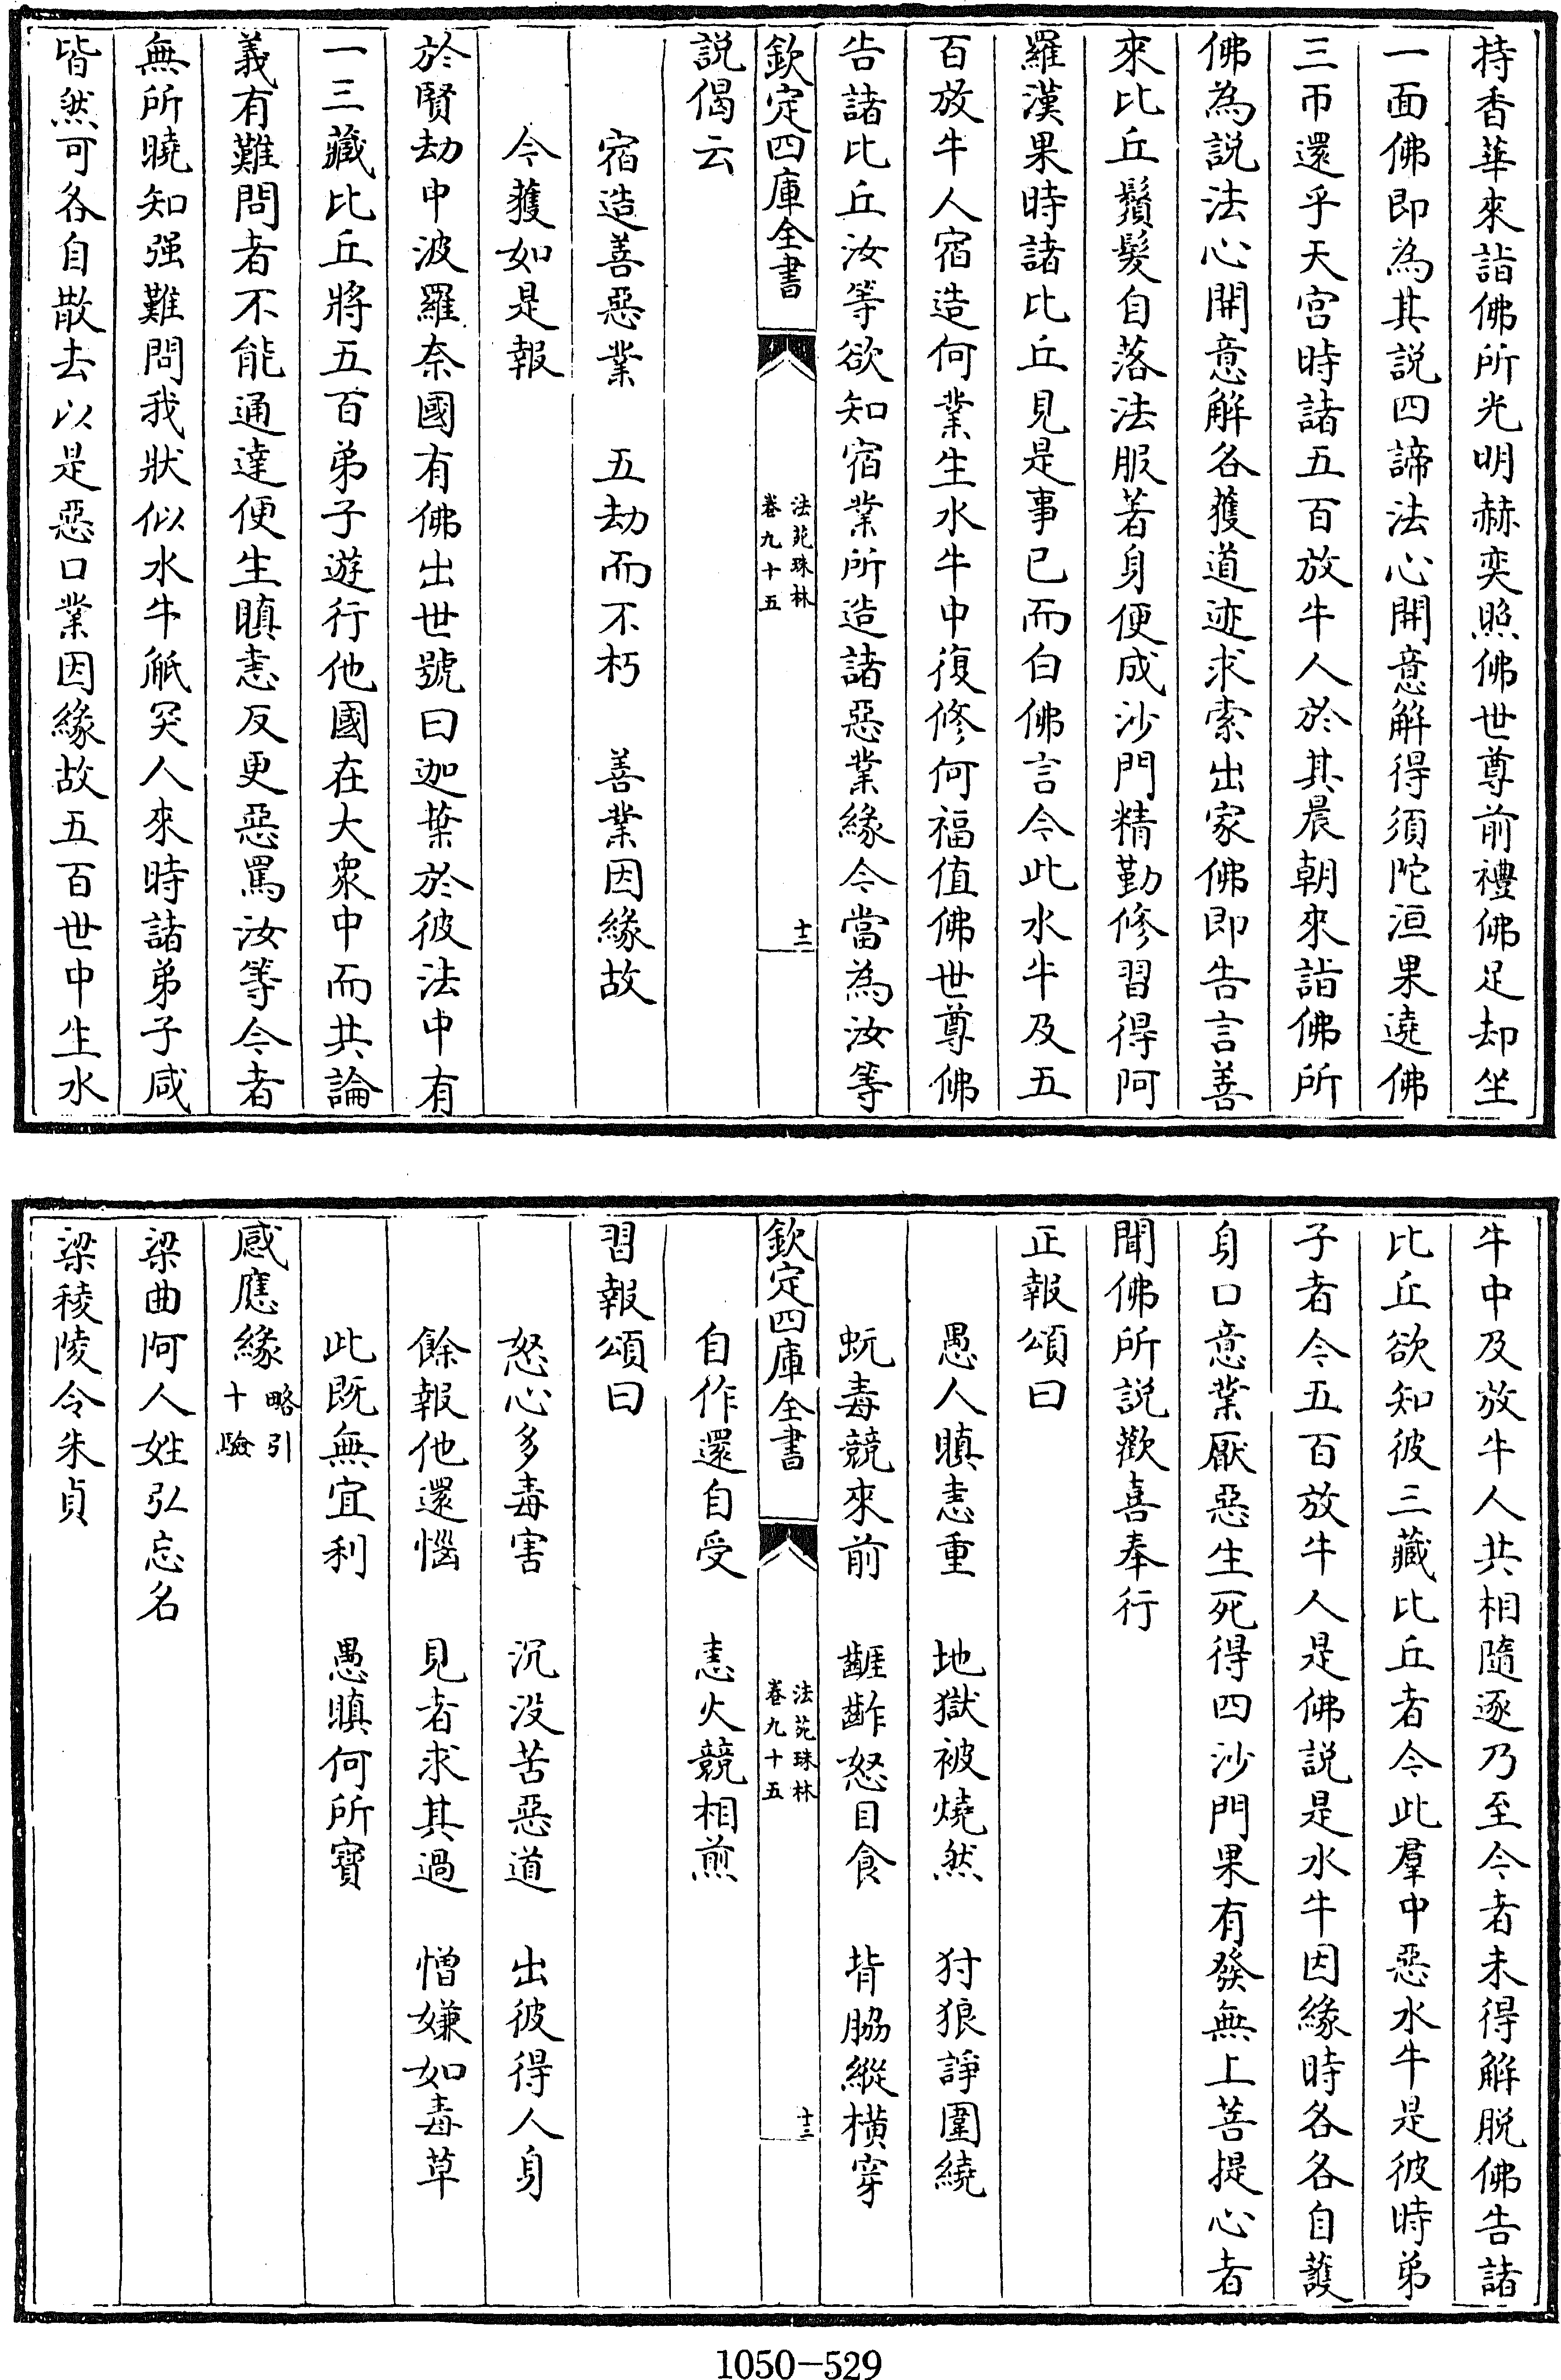 持香華來詣佛所光明赫奕照佛世尊前禮佛足却坐
一面佛即為其說四諦法心開意解得須陀洹果遶佛
三帀還乎天宮時諸五百放牛人於其晨朝來詣佛所
佛為說法心開意解各獲道迹求索出家佛即告言善
來比丘鬚髮自落法服著身便成沙門精勤修習得阿
羅漢果時諸比丘見是事已而白佛言今此水牛及五
百放牛人宿造何業生水牛中復修何福值佛世尊佛
告諸比丘汝等欲知宿業所造諸惡業緣今當為汝等
欽定四庫全書
法苑珠林
卷九十五
十二
說偈云
宿造善惡業　五劫而不朽　善業因緣故
今獲如是報
於賢劫中波羅奈國有佛出世號曰迦葉於彼法中有
一三藏比丘將五百弟子遊行他國在大衆中而共論
義有難問者不能通達便生瞋恚反更惡罵汝等今者
無所曉知强難問我狀似水牛觝突人來時諸弟子咸
皆然可各自散去以是惡口業因緣故五百世中生水
牛中及放牛人共相隨逐乃至今者未得解脫佛告諸
比丘欲知彼三藏比丘者今此羣中惡水牛是彼時弟
子者今五百放牛人是佛說是水牛因緣時各各自護
身口意業厭惡生死得四沙門果有發無上菩提心者
聞佛所說歡喜奉行
正報頌曰
愚人瞋恚重　地獄被燒然　犲狼諍圍繞
蚖毒競來前　齷齪怒目食　背脇縱橫穿
欽定四庫全書
法苑珠林
卷九十五
十三
自作還自受　恚火競相煎
習報頌曰
怒心多毒害　沉沒苦惡道　出彼得人身
餘報他還惱　見者求其過　憎嫌如毒草
此既無宜利　愚瞋何所寶
感應緣略引十驗
梁曲阿人姓弘忘名
梁稜陵令朱貞
1050-529